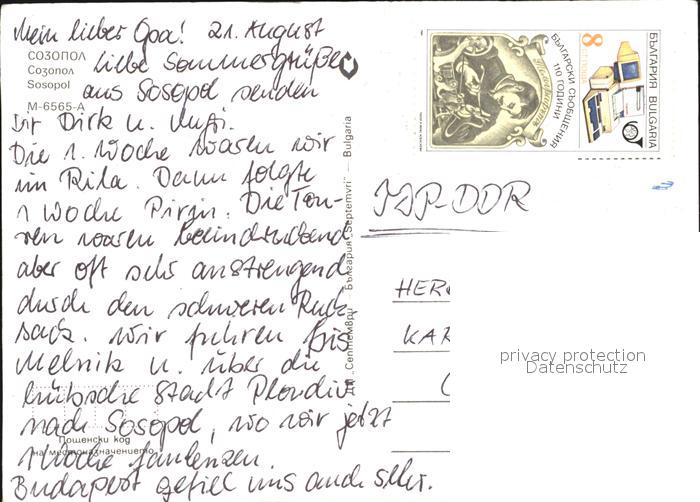 Mein lieber Opa! 21. August
СОЗОПОЛ
Созопол
Sosopol
М-6565-А
liebe Sommergrüße
aus Sosopol senden
Dir Dirk u.
Die 1. Woche waren wir
im Rila. Dann folgte
1 Woche Pirin. Die Tou-
ren waren beeindruckend
aber oft sehr anstrengend
durch den schweren Ruck
sack. Wir fuhren bis
Melnik u. über die
hübsche Stadt Plovdiv
nach Sosopol, wo wir jetzt
1 Woche faulenzen.
Budapest gefiel uns auch sehr.
Пощенски код
на местоназначението
ДП „Септември" България „Septemvri" — Bulgaria
БЪЛГАРСКИ СЪОБЩЕНИЯ
110 ГОДИНИ
8
БЪЛГАРИЯ BULGARIA
DDR
HER
KAR
privacy protection
Datenschutz